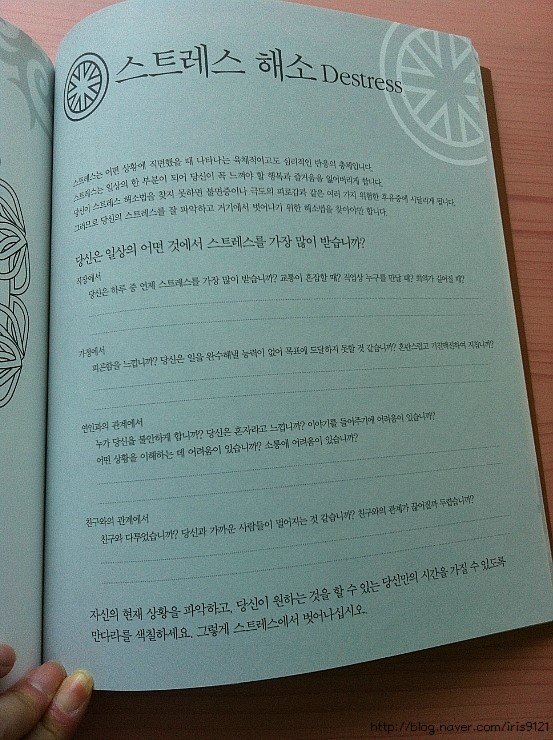 스트레스 해소 Destress
스트레스는 어떤 상황에 직면했을 때 나타나는 육체적이고도 심리적인 반응의 총체입니다.
스트레스는 일상의 한 부분이 되어 당신이 꼭 느껴야 할 행복과 즐거움을 잃어버리게 합니다.
당신이 스트레스 해소법을 찾지 못하면 불면증이나 극도의 피로감과 같은 여러 가지 위험한 후유증에 시달리게 됩니다.
그러므로 당신의 스트레스를 잘 파악하고 거기에서 벗어나기 위한 해소법을 찾아야만 합니다.
당신은 일상의 어떤 것에서 스트레스를 가장 많이 받습니까?
직장에서
당신은 하루 중 언제 스트레스를 가장 많이 받습니까? 교통이 혼잡할 때? 직업상 누구를 만날 때? 회의가 길어질 때?
가정에서
피곤함을 느낍니까? 당신은 일을 완수해낼 능력이 없어 목표에 도달하지 못할 것 같습니까? 혼란스럽고 기진맥진하여 지칩니까?
연인과의 관계에서
누가 당신을 불안하게 합니까? 당신은 혼자라고 느낍니까? 이야기를 들어주기에 어려움이 있습니까?
어떤 상황을 이해하는 데 어려움이 있습니까? 소통에 어려움이 있습니까?
친구와의 관계에서
친구와 다투었습니까? 당신과 가까운 사람들이 멀어지는 것 같습니까? 친구와의 관계가 끊어질까 두렵습니까?
자신의 현재 상황을 파악하고, 당신이 원하는 것을 할 수 있는 당신만의 시간을 가질 수 있도록
만다라를 색칠하세요. 그렇게 스트레스에서 벗어나십시오.
http://blog.naver.com/iris9121